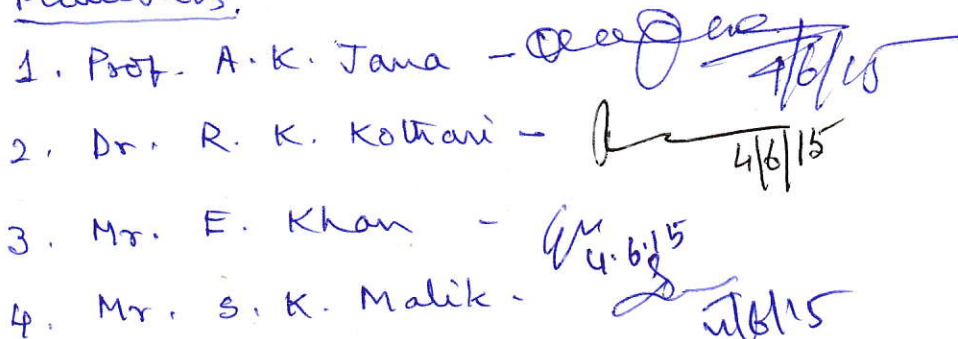 1. Prof. A.K. Jana - 4/6/15
2. Dr. R. K. Kothari - 4/6/15
3. Mr. E. Khan - 4.6.15
4. Mr. S. K. Malik - 4/6/15